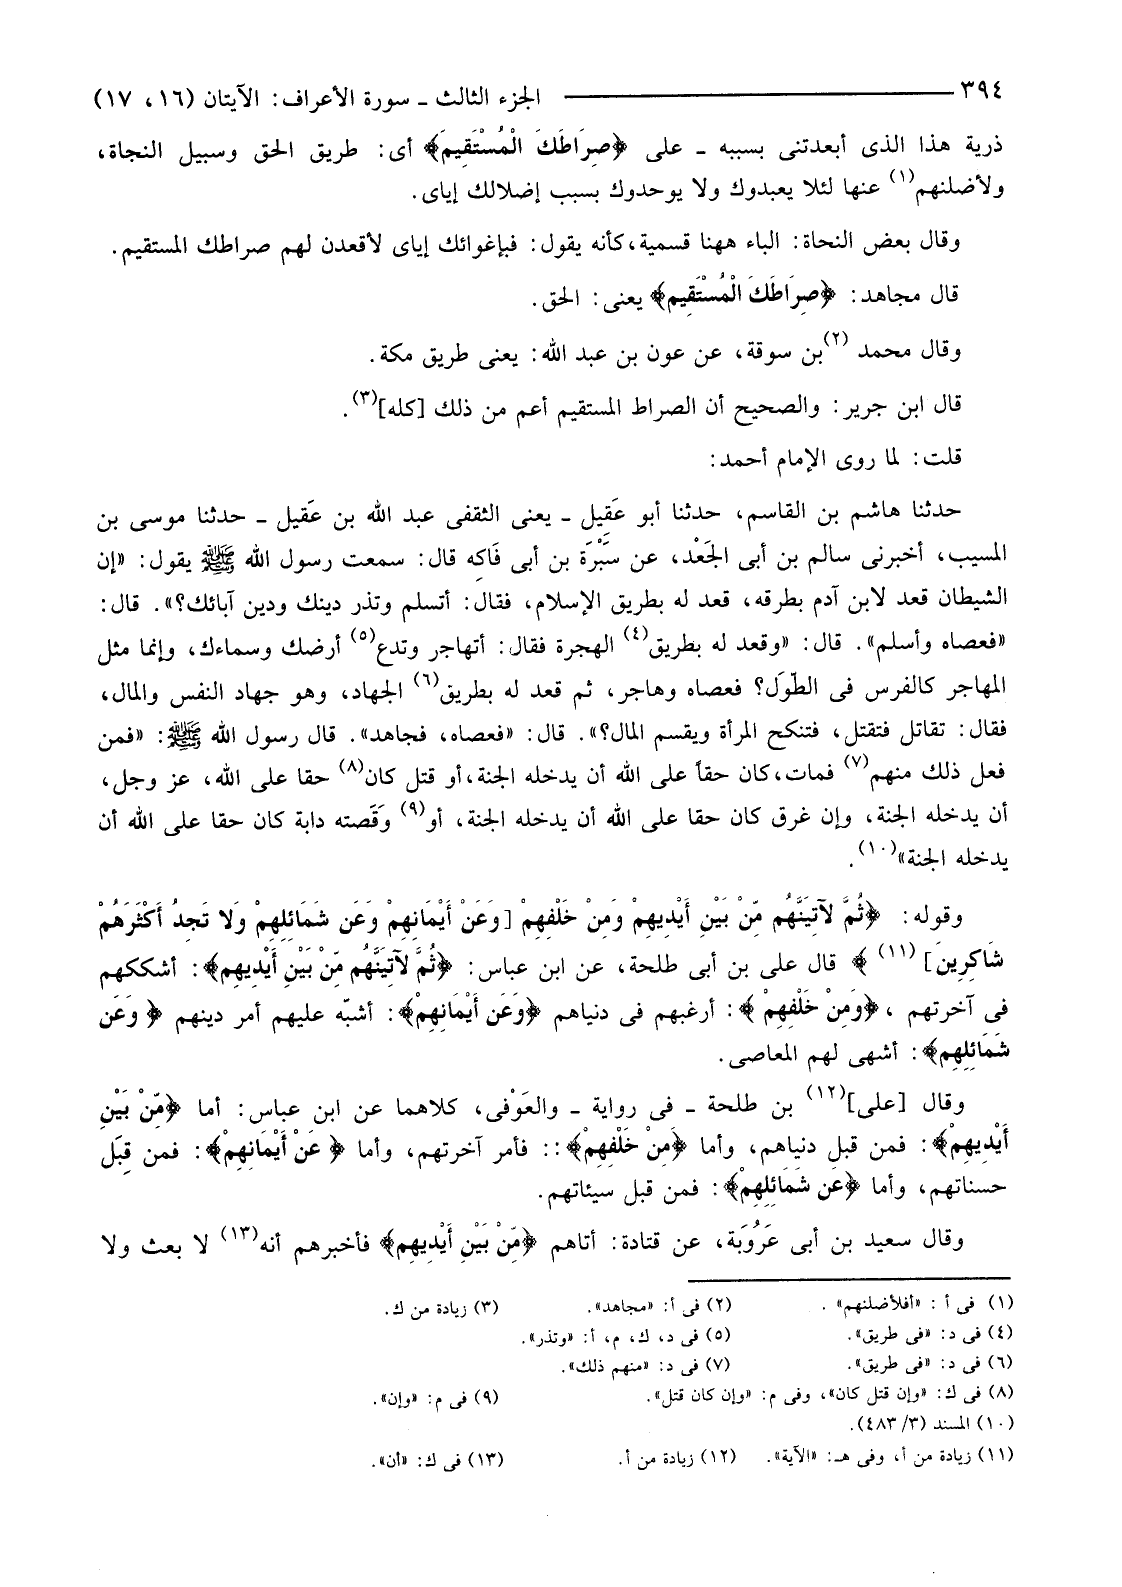 ٣٩٤ ـــــــ الجزء الثالث ـ سورة الأعراف: الآيتان (١٦، ١٧)
ذرية هذا الذى أبعدتنى بسببه ـ على ﴿صِرَاطَكَ الْمُسْتَقِيمَ﴾ أى: طريق الحق وسبيل النجاة،
ولأضلنهم(١) عنها لئلا يعبدوك ولا يوحدوك بسبب إضلالك إياى.
وقال بعض النحاة: الباء ههنا قسمية، كأنه يقول: فبإغوائك إياى لأقعدن لهم صراطك المستقيم.
قال مجاهد: ﴿صِرَاطَكَ الْمُسْتَقِيمَ﴾ يعنى: الحق.
وقال محمد (٢)بن سوقة، عن عون بن عبد الله: يعنى طريق مكة.
قال ابن جرير: والصحيح أن الصراط المستقيم أعم من ذلك [كله](٣).
قلت: لما روى الإمام أحمد:
حدثنا هاشم بن القاسم، حدثنا أبو عَقِيل ـ يعنى الثقفى عبد الله بن عَقيل ـ حدثنا موسى بن
المسيب، أخبرنى سالم بن أبى الجَعْد، عن سَبْرَة بن أبى فَاكِه قال: سمعت رسول الله ﷺ يقول: «إن
الشيطان قعد لابن آدم بطرقه، قعد له بطريق الإسلام، فقال: أتسلم وتذر دينك ودين آبائك؟». قال:
«فعصاه وأسلم». قال: «وقعد له بطريق(٤) الهجرة فقال: أتهاجر وتدع(٥) أرضك وسماءك، وإنما مثل
المهاجر كالفرس فى الطّوَل؟ فعصاه وهاجر، ثم قعد له بطريق(٦) الجهاد، وهو جهاد النفس والمال،
فقال: تقاتل فتقتل، فتنكح المرأة ويقسم المال؟». قال: «فعصاه، فجاهد». قال رسول الله ﷺ: «فمن
فعل ذلك منهم(٧) فمات، كان حقاً على الله أن يدخله الجنة، أو قتل كان(٨) حقا على الله، عز وجل،
أن يدخله الجنة، وإن غرق كان حقا على الله أن يدخله الجنة، أو(٩) وَقَصته دابة كان حقا على الله أن
يدخله الجنة»(١٠).
وقوله: ﴿ثُمَّ لآتِيَنَّهُم مِّنْ بَيْنِ أَيْدِيهِمْ وَمِنْ خَلْفِهِمْ [وَعَنْ أَيْمَانِهِمْ وَعَن شَمَائِلِهِمْ وَلا تَجِدُ أَكْثَرَهُمْ
شَاكِرِينَ] (١١) ﴾ قال على بن أبى طلحة، عن ابن عباس: ﴿ثُمَّ لآتِيَنَّهُم مِّنْ بَيْنِ أَيْدِيهِمْ﴾: أشككهم
فى آخرتهم ، ﴿وَمِنْ خَلْفِهِمْ ﴾: أرغبهم فى دنياهم ﴿وَعَن أَيْمَانِهِمْ﴾: أشبّه عليهم أمر دينهم ﴿ وَعَن
شَمَائِلِهِمْ﴾: أشهى لهم المعاصى.
وقال [على](١٢) بن طلحة ـ فى رواية ـ والعَوْفى، كلاهما عن ابن عباس: أما ﴿مِّنْ بَيْنِ
أَيْدِيهِمْ﴾: فمن قبل دنياهم، وأما ﴿مِنْ خَلْفِهِمْ﴾:: فأمر آخرتهم، وأما ﴿ عَنْ أَيْمَانِهِمْ﴾: فمن قِبَل
حسناتهم، وأما ﴿عَن شَمَائِلِهِمْ﴾: فمن قبل سيئاتهم.
وقال سعيد بن أبى عَرُوُبَة، عن قتادة: أتاهم ﴿مِّنْ بَيْنِ أَيْدِيهِم﴾ فأخبرهم أنه(١٣) لا بعث ولا
(١) فى أ : «أفلأضلنهم» . (٢) فى أ: «مجاهد». (٣) زيادة من ك.
(٤) فى د: «فى طريق». (٥) فى د، ك، م، أ: «وتذر».
(٦) فى د: «فى طريق». (٧) فى د: «منهم ذلك».
(٨) فى ك: «وإن قتل كان»، وفى م: «وإن كان قتل». (٩) فى م: «وإن».
(١٠) المسند (٣/ ٤٨٣).
(١١) زيادة من أ، وفى هـ: «الآية». (١٢) زيادة من أ. (١٣) فى ك: «أن».